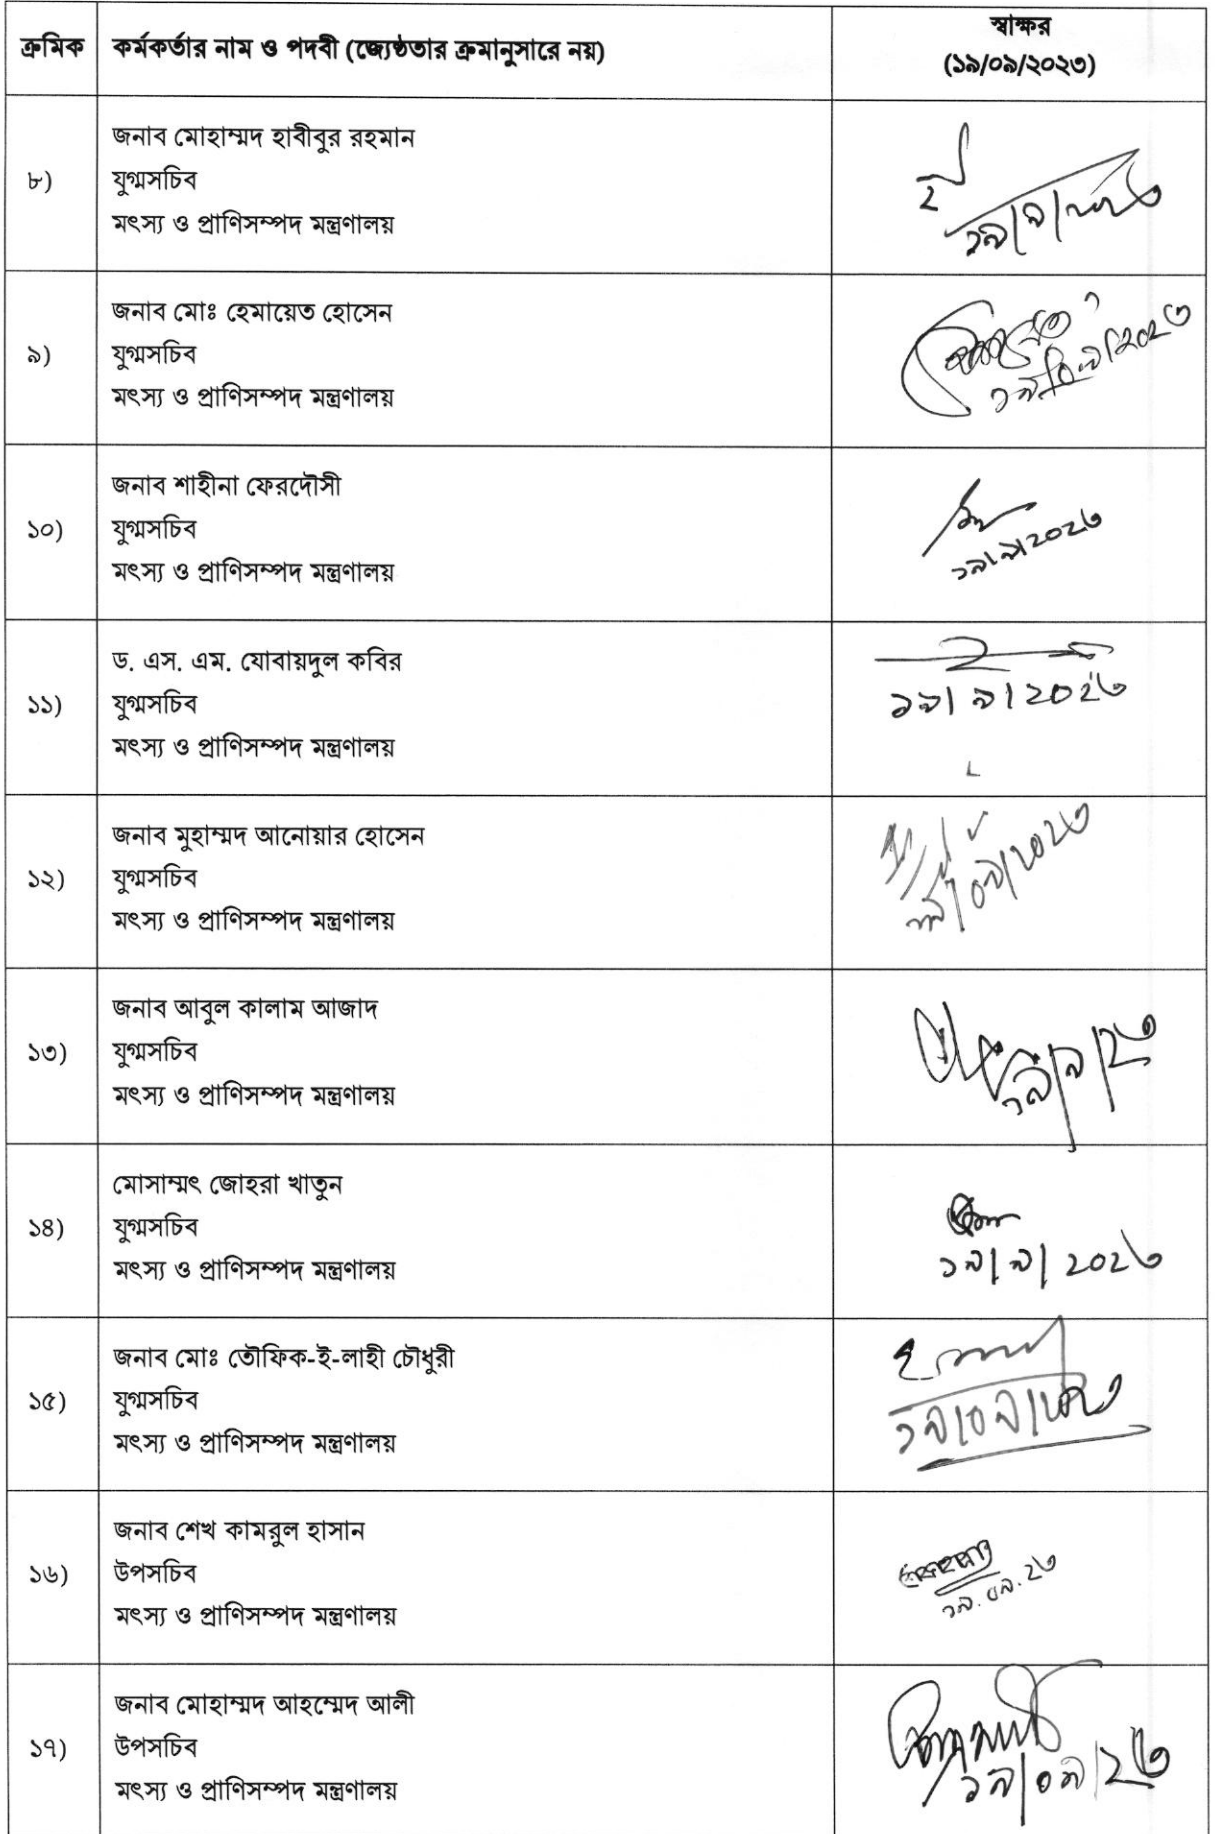 ক্রমিক
কর্মকর্তার নাম ও পদবী (জ্যেষ্ঠতার ক্রমানুসারে নয়)
স্বাক্ষর
(১৯/০৯/২০২৩)
৮)
জনাব মোহাম্মদ হাবীবুর রহমান
যুগ্মসচিব
মৎস্য ও প্রাণিসম্পদ মন্ত্রণালয়
৯)
জনাব মোঃ হেমায়েত হোসেন
যুগ্মসচিব
মৎস্য ও প্রাণিসম্পদ মন্ত্রণালয়
১৯/০৯/২০২৩
১০)
জনাব শাহীনা ফেরদৌসী
যুগ্মসচিব
মৎস্য ও প্রাণিসম্পদ মন্ত্রণালয়
১৯/৯/২০২৩
১১)
ড. এস. এম. যোবায়দুল কবির
যুগ্মসচিব
মৎস্য ও প্রাণিসম্পদ মন্ত্রণালয়
১৯/৯/২০২৩
১২)
জনাব মুহাম্মদ আনোয়ার হোসেন
যুগ্মসচিব
মৎস্য ও প্রাণিসম্পদ মন্ত্রণালয়
১৯/০৯/২০২৩
১৩)
জনাব আবুল কালাম আজাদ
যুগ্মসচিব
মৎস্য ও প্রাণিসম্পদ মন্ত্রণালয়
১৯/৯/২৩
১৪)
মোসাম্মৎ জোহরা খাতুন
যুগ্মসচিব
মৎস্য ও প্রাণিসম্পদ মন্ত্রণালয়
১৯/৯/২০২৩
১৫)
জনাব মোঃ তৌফিক-ই-লাহী চৌধুরী
যুগ্মসচিব
মৎস্য ও প্রাণিসম্পদ মন্ত্রণালয়
১৬)
জনাব শেখ কামরুল হাসান
উপসচিব
মৎস্য ও প্রাণিসম্পদ মন্ত্রণালয়
১৯.০৯.২৩
১৭)
জনাব মোহাম্মদ আহম্মেদ আলী
উপসচিব
মৎস্য ও প্রাণিসম্পদ মন্ত্রণালয়
১৯/০৯/২৩